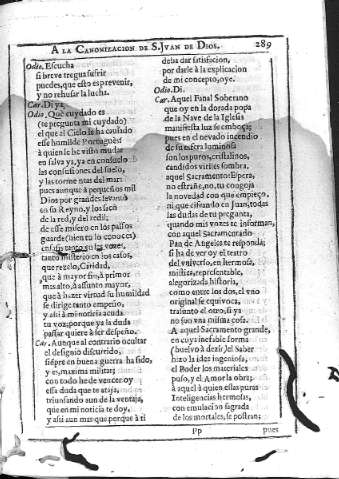 A LA CANONIZACION DE S. IVAN DE DIOS. 289
Odio. Escucha
si breve tregua sufrir
puedes, que esto es prevenir,
y no rehusar la lucha.
Car. Di ya.
Odio. Que cuydado es
(te pregunta mi cuydado)
el que al Cielo le ha costado
esse humilde Portugues
à quien le he visto mudar
en salva ya, ya en consuelo
las confusiones del suelo,
y las tormentas del mar:
pues aunque à pequeños mil
Dios por grandes levantò
en su Reyno, y los sacò
de la red, y del redil;
de esse misero en los passos
guarde (bien tu lo conoces)
tanto misterio en los casos,
que rezelo, Caridad,
que à mayor fin, à primor
mas alto, à assunto mayor,
que à hazer virtud su humildad
se dirige tanto empeño,
y assi à mi noticia acuda
tu voz, porque ya la duda
passar quiere à ser despeño.
Car. Aunque al contrario ocultar
el designio discurrido,
siempre en buena guerra ha sido,
y es, maxima militar;
con todo he de vencer oy
essa duda que te ataja,
triunfando aun de la ventaja,
que en mi noticia te doy,
y assi aun mas que porque à ti
deba dar satisfacion,
por darle à la explicacion
de mi concepto, oye.
Odio. Di.
Car. Aquel Fanal Soberano
que oy en la dorada popa
de la Nave de la Iglesia
manifiesta luz se emboça;
pues en el nevado incendio
de su esfera luminosa
son los puros, cristalinos,
candidos viriles sombra.
aquel Sacramento Espera,
no estrañe, no, tu congoja
la novedad con que empieço,
ni que cifrando en Juan, todas
las dudas de tu pregunta,
quando mis vozes te informan,
con aquel Sacramentado
Pan de Angeles te responda;
si ha de ver oy el teatro
del vniverso, en hermosa,
mistica, representable,
alegorizada historia,
como entre los dos, el vno
original se equivoca,
traslento el otro, si ya
no son vna misma cosa.
A aquel Sacramento grande,
en cuya inefable forma
(buelvo à dezir) el Saber
hizo la idea ingeniosa,
el Poder los materiales
puso, y el Amor la obra;
à aquel à quien essas puras
Inteligencias hermosas,
con emulacion sagrada
de los mortales, se postran;
Pp
pues